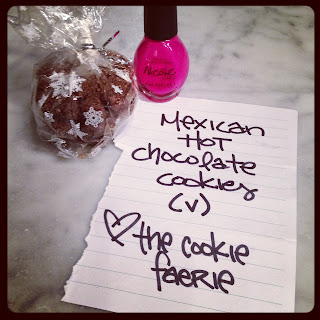 Nicole
Mexican
Hot
chocolate
cookies
(v)
the cookie
faerie